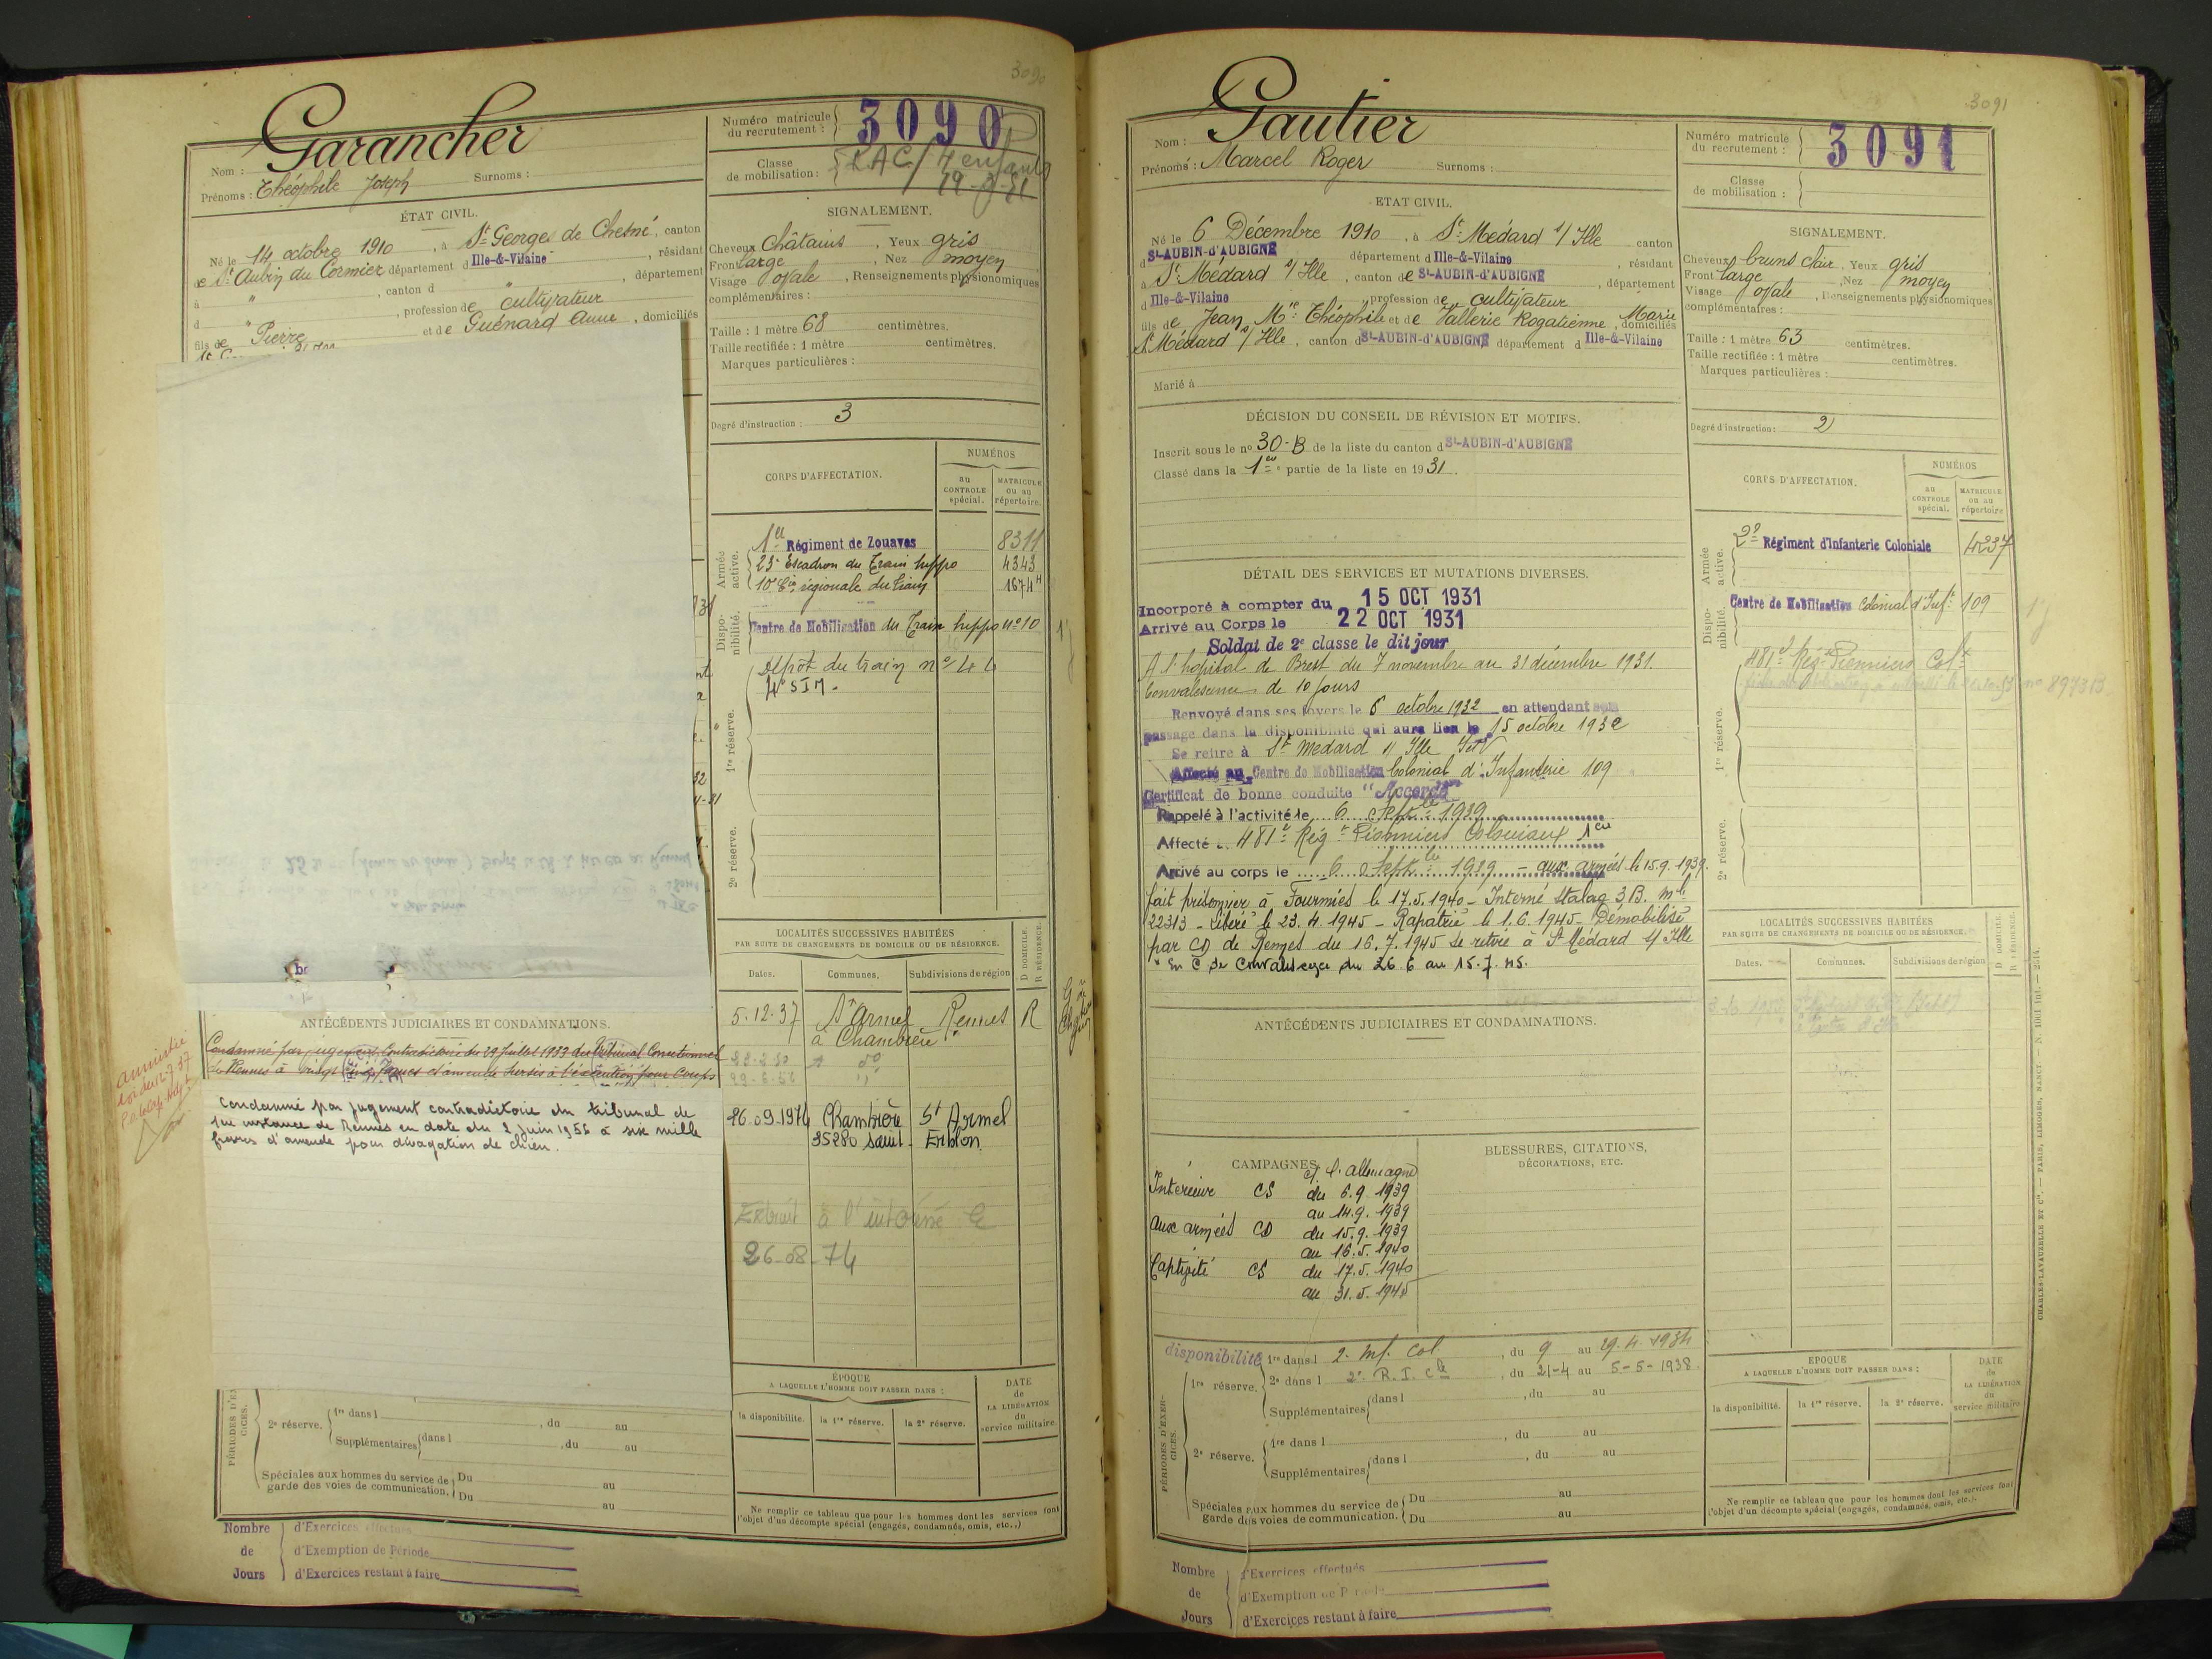 3090
Garancher
Nom :
Prénoms : Théophile Joseph Surnoms :
Numéro matricule
du recrutement :
3090
Classe
de mobilisation :
R.A.C. / 7 enfants
ÉTAT CIVIL.
Né le 14 octobre 1910, à St Georges de Chesné, canton
de St Aubin du Cormier département d Ille-&-Vilaine, résidant
à " , canton d " , département
d " , profession de cultivateur
fils de Pierre et de Guénard Anne, domiciliés
SIGNALEMENT.
Cheveux Châtains, Yeux gris
Front large, Nez moyen
Visage ovale, Renseignements physionomiques
complémentaires :
Taille : 1 mètre 68 centimètres.
Taille rectifiée : 1 mètre centimètres.
Marques particulières :
Degré d'instruction : 3
CORPS D'AFFECTATION.
NUMÉROS
au
CONTROLE
spécial.
MATRICULE
ou au
répertoire.
Armée
active.
1er Régiment de Zouaves 8311
23e Escadron du Train hippo 4343
10e Cie régionale du Train 1674H
Dispo-
nibilité.
Centre de Mobilisation du Train hippo n° 10
1re réserve.
Dépôt du train n° 44
2e réserve.
LOCALITÉS SUCCESSIVES HABITÉES
PAR SUITE DE CHANGEMENTS DE DOMICILE OU DE RÉSIDENCE.
Dates.
Communes.
Subdivisions de région
D DOMICILE.
R RÉSIDENCE.
5.12.37 St Armel Rennes R
à Chambière
26.09.1974 Chambière St Armel
35280 Saint-Erblon
Extrait à l'intéressé le
26-08-74
ANTÉCÉDENTS JUDICIAIRES ET CONDAMNATIONS.
Condamné par jugement Contradictoire du 29 Juillet 1933 du Tribunal Correctionnel
de Rennes à vingt cinq Francs et amende sursis à l'exécution pour Coups
amnistie
loi du 12-7-37
Condamné par jugement contradictoire du tribunal de
1ère instance de Rennes en date du 2 juin 1956 à six mille
francs d'amende pour divagation de chien.
PÉRIODES D'EXER-
CICES.
2e réserve.
1re dans l , du au
Supplémentaires dans l , du au
Spéciales aux hommes du service de
garde des voies de communication.
Du au
Du au
ÉPOQUE
A LAQUELLE L'HOMME DOIT PASSER DANS :
la disponibilité.
la 1re réserve.
la 2e réserve.
DATE
de
LA LIBÉRATION
du
service militaire.
Ne remplir ce tableau que pour les hommes dont les services font
l'objet d'un décompte spécial (engagés, condamnés, omis, etc..)
Nombre
de
Jours
d'Exercices effectués
d'Exemption de Période
d'Exercices restant à faire
3091
Gautier
Nom :
Prénoms : Marcel Roger Surnoms :
Numéro matricule
du recrutement :
3091
Classe
de mobilisation :
ETAT CIVIL.
Né le 6 Décembre 1910, à St Médard s/ Ille canton
d St-AUBIN-d'AUBIGNE département d Ille-&-Vilaine, résidant
à St Médard s/ Ille, canton de St-AUBIN-d'AUBIGNE, département
d Ille-&-Vilaine profession de cultivateur
fils de Jean Mie Théophile et de Vallerie Rogatienne Marie, domiciliés
St Médard s/ Ille, canton d St-AUBIN-d'AUBIGNE département d Ille-&-Vilaine
Marié à
SIGNALEMENT.
Cheveux bruns clair, Yeux gris
Front large, Nez moyen
Visage ovale, Renseignements physionomiques
complémentaires :
Taille : 1 mètre 63 centimètres.
Taille rectifiée : 1 mètre centimètres.
Marques particulières :
Degré d'instruction : 2
DÉCISION DU CONSEIL DE RÉVISION ET MOTIFS.
Inscrit sous le no 30-B de la liste du canton d St-AUBIN-d'AUBIGNE
Classé dans la 1ere partie de la liste en 1931.
DÉTAIL DES SERVICES ET MUTATIONS DIVERSES.
Incorporé à compter du 15 OCT 1931
Arrivé au Corps le 22 OCT 1931
Soldat de 2e classe le dit jour
A l'hôpital de Brest du 7 novembre au 31 décembre 1931.
Convalescence de 10 jours
Renvoyé dans ses foyers le 6 octobre 1932 en attendant son
passage dans la disponibilité qui aura lieu le 15 octobre 1932
Se retire à St Medard s/ Ille I et V
Affecté au Centre de Mobilisation Colonial d'Infanterie 109
Certificat de bonne conduite "Accordé"
Rappelé à l'activité le 6 Septbre 1939
Affecté 481e Régt Pionniers Coloniaux
Arrivé au corps le 6 Septbre 1939 - aux armées le 15.9.1939.
fait prisonnier à Fourmies le 17.5.1940 - Interné Stalag 3B. mle
22313 - Libéré le 23.4.1945 - Rapatrié le 1.6.1945 - Démobilisé
par CD de Rennes du 16.7.1945 se retire à St Médard s/ Ille
* En C de Convalescence du 26.6 au 15.7.45.
CORPS D'AFFECTATION.
NUMÉROS
au
CONTROLE
spécial.
MATRICULE
ou au
répertoire
Armée
active.
2e Régiment d'Infanterie Coloniale 4237
Dispo-
nibilité.
Centre de Mobilisation Colonial d'Inf. 109
1re réserve.
481e Rég. Pionniers Colx
n° 897313
2e réserve.
LOCALITÉS SUCCESSIVES HABITÉES
PAR SUITE DE CHANGEMENTS DE DOMICILE OU DE RÉSIDENCE.
Dates.
Communes.
Subdivisions de région
D DOMICILE.
R RÉSIDENCE.
ANTÉCÉDENTS JUDICIAIRES ET CONDAMNATIONS.
CAMPAGNES
ct. l'allemagne
Intérieur CS du 6.9.1939
au 14.9.1939
aux armées CD du 15.9.1939
au 16.5.1940
Captivité CS du 17.5.1940
au 31.5.1945
BLESSURES, CITATIONS,
DÉCORATIONS, ETC.
PÉRIODES D'EXER-
CICES.
disponibilité 1re dans l 2. Inf. Col. , du 9 au 29.4.1934
1re réserve. 2e dans l 2e R.I.Cle , du 21-4 au 5-5-1938.
Supplémentaires dans l , du au
2e réserve.
1re dans l , du au
Supplémentaires dans l , du au
Spéciales aux hommes du service de
garde des voies de communication.
Du au
Du au
EPOQUE
A LAQUELLE L'HOMME DOIT PASSER DANS :
la disponibilité.
la 1re réserve.
la 2e réserve.
DATE
de
LA LIBÉRATION
du
service militaire.
Ne remplir ce tableau que pour les hommes dont les services font
l'objet d'un décompte spécial (engagés, condamnés, omis, etc.).
CHARLES-LAVAUZELLE ET Cie. — PARIS, LIMOGES, NANCY
Nombre
de
Jours
d'Exercices effectués
d'Exemption de Période
d'Exercices restant à faire